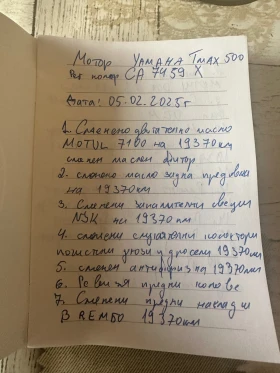 Мотор YAMAHA Tmax 500
Рег номер CA 7459 X
Дата: 05.02.2025г
1. Сменено двигателно масло
MOTUL 7100 на 19370км
сменен маслен филтър
2. сменено масло задна предавка
на 19370км
3. Сменени запалителни свещи
NGK на 19370км
4. сменени
почистени дюзи и дросели 19370км
5. сменен антифриз на 19370км
6. Ревизия предни
7. Сменени предни накладки
BREMBO 19370км